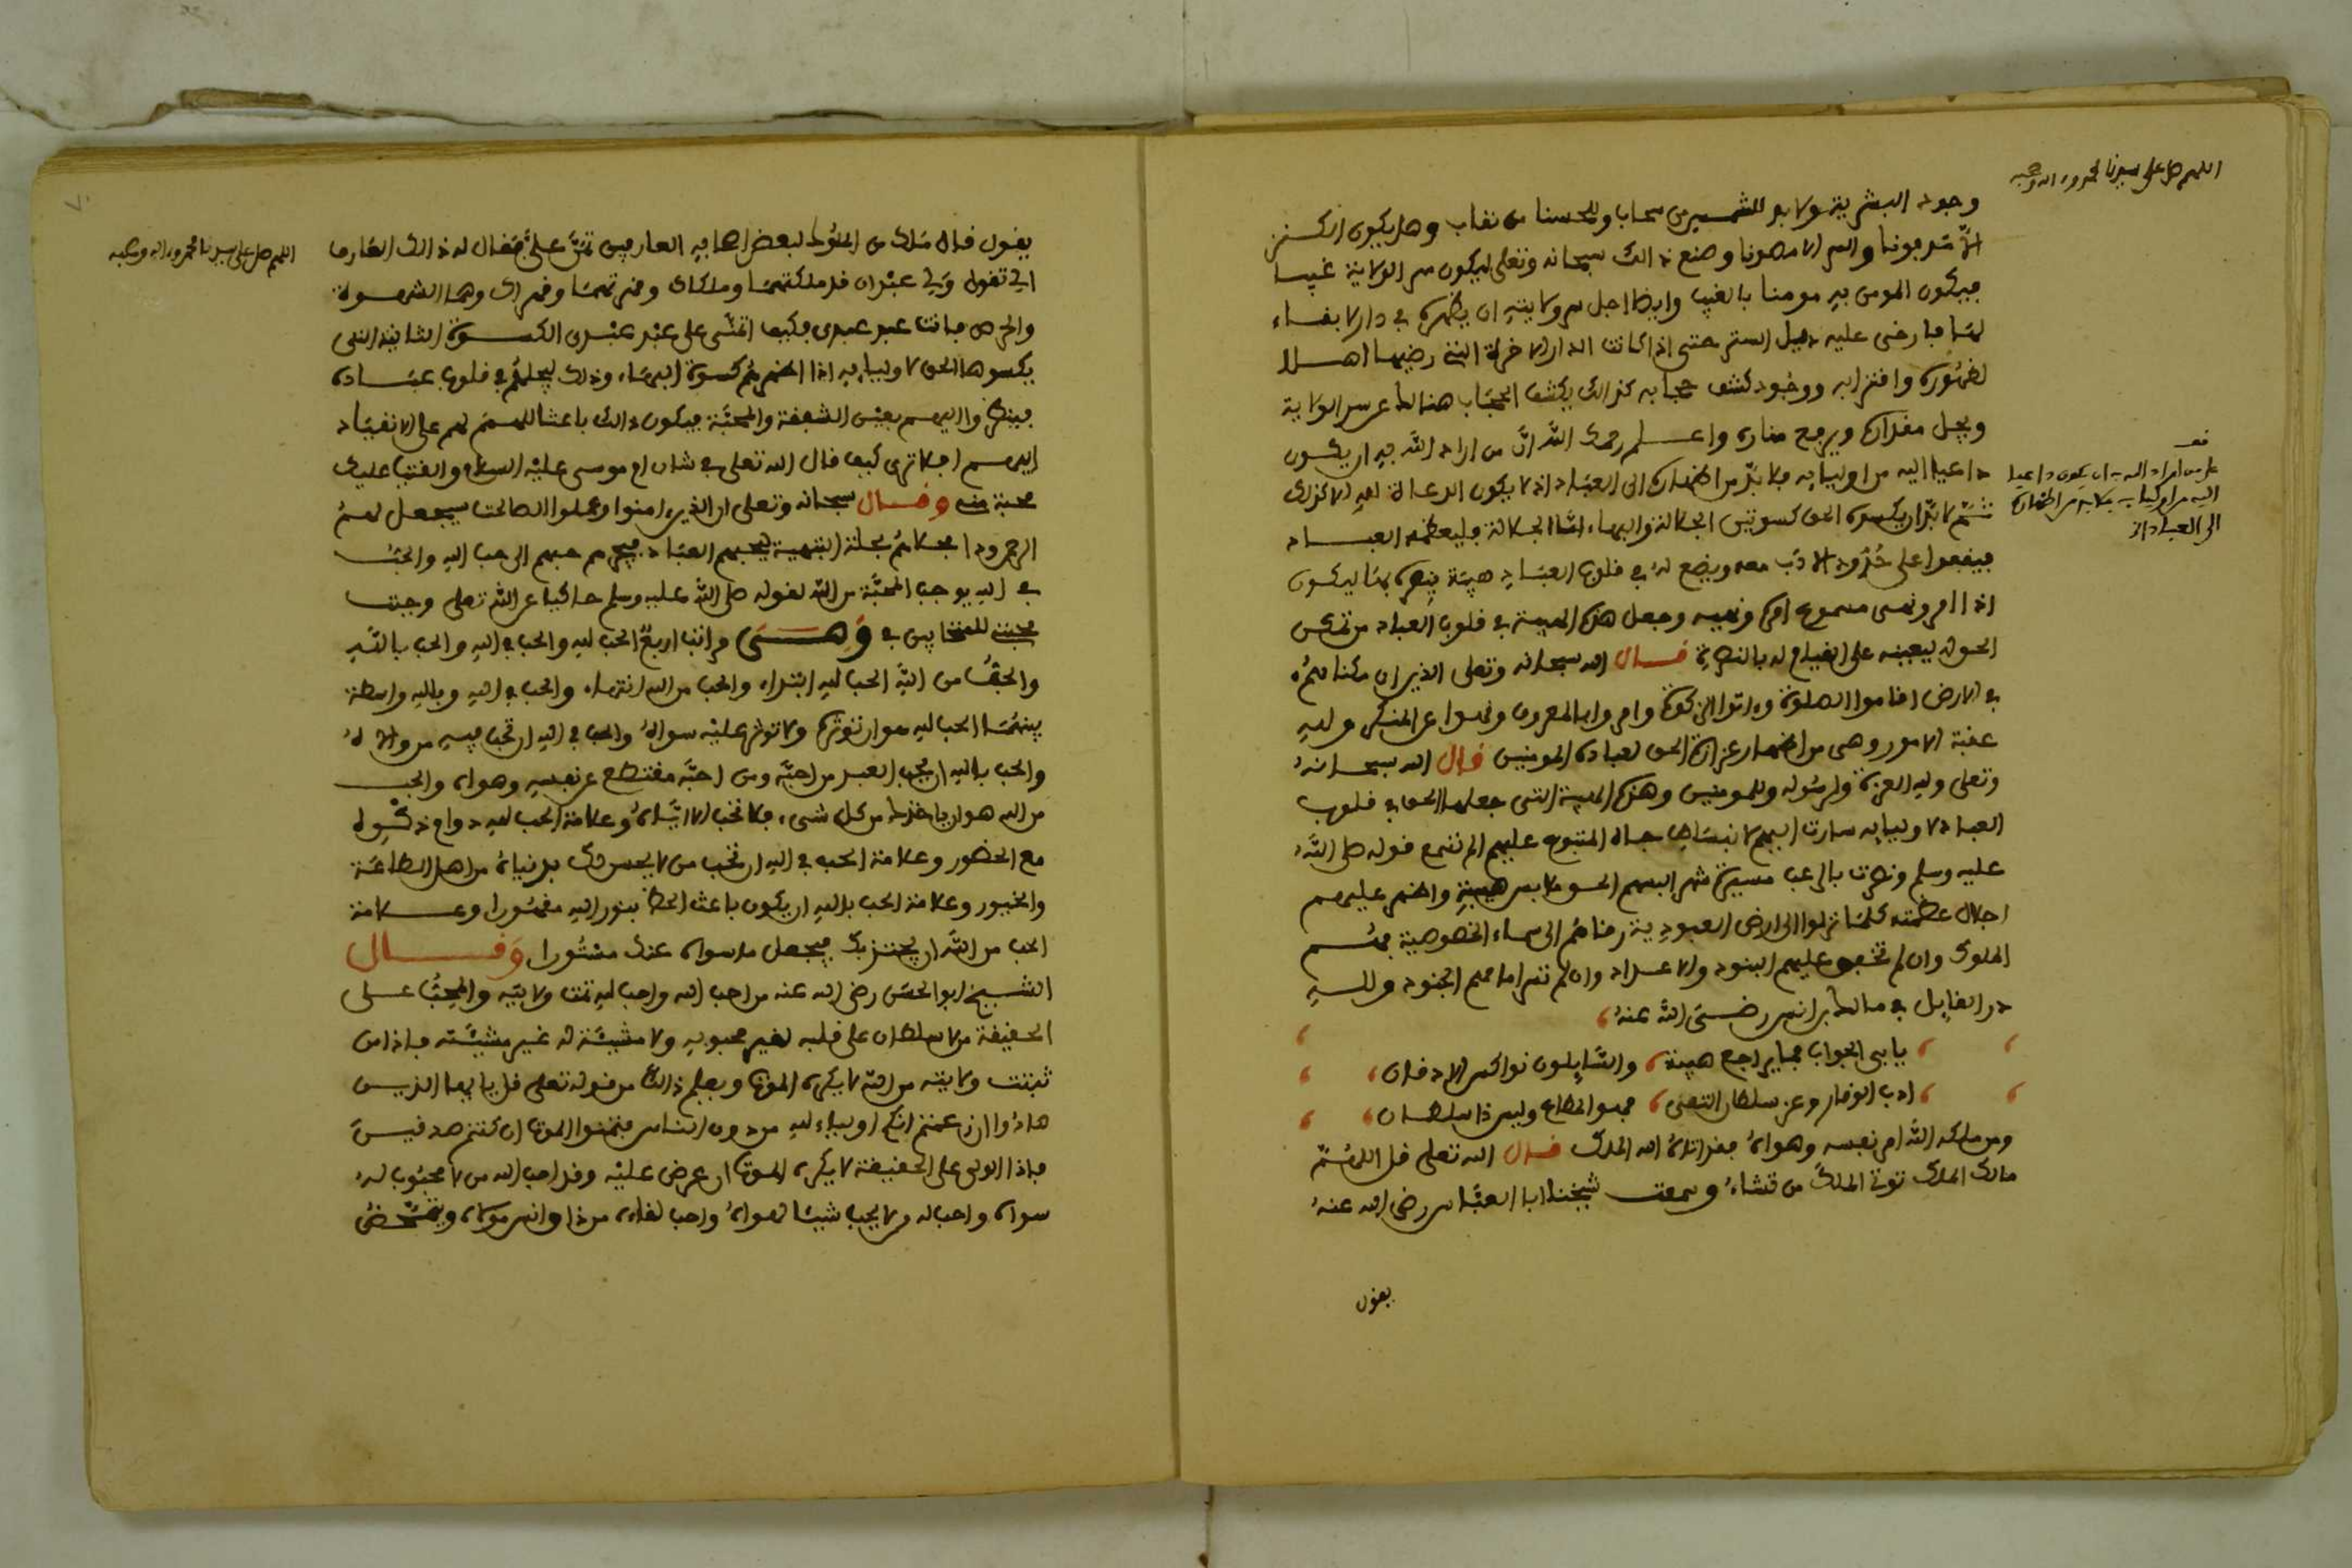 اللهم صل على سيدنا محمد وءاله وصحبه
وجود البشرية ولا بد للشمس من سحاب وللحسنا من نقاب وهل يكون الكنز
الّا مدفونا والسر الا مصونا وصنع ذالك سبحانه وتعلى ليكون سر الولاية غيبا
فيكون المومن به مومنا بالغيب وايضا اجل سر ولايته ان يظهره في دار لا بقاء
لها فارخى عليه ذيل الستر حتى اذا كانت الدار الاخرة التي رضيها اهلا
لظهوره واقترابه ووجود كشف حجابه كذالك يكشف الحجاب هنالك عن سر الولاية
ويجل مقداره ويرفع مناره واعلم رحمك الله انّ من اراد الله به ان يكون
داعيا اليه من اوليايه فلا بدّ من اظهاره الى العباد اذ لا يكون الدعاة لله الا كذلك
ثم لا بدّ ان يكسوه الحق كسوتين الجلالة والبهاء امّا الجلالة فليعظمه العباد
فيقفوا على حُدُود الادب معه ويضع له في قلوب العباد هيبة ينصره بها ليكون
اذا امر ونهى مسموع امره ونهيه وجعل هذه الهيبة في قلوب العباد من نصرة
الحق له ليعينه على القيام له بالنصرة قال الله سبحانه وتعلى الذين ان مكناهمُ
في الارض اقاموا الصلوة وءاتوا الزكوة وامروا بالمعروف ونهوا عن المنكر ولله
عقبة الامور وهي من اظهار عزازة الحق لعباده المومنين قال الله سبحانهُ
وتعلى ولله العزة ولرسُوله وللمومنين وهذه الهيبة التي جعلها الحق في قلوب
العباد لاوليايه سارت اليهم لانبساط جاه المتبوع عليهم الم تسمع قوله صلى اللهُ
عليه وسلم ونصرت بالرعب مسيرة شهر البسهم الحق ملابس هيبته واظهر عليهم
اجلال عظمته كلما نزلوا الى ارض العبودية رفاهُم الى سماء الخصوصية فهُم
الملوك وان لم تخفق عليهم البنود والاعزاد وان لم تسر امامهم الجنود وللهِ
در القايل في مالك بن انس رضى الله عنهُ
يابى الجواب فما يراجع هيبة والسّايلون نواكس الاذقان
ادب الوقار وعز سلطان التقى فهو المطاع وليس ذا سلطان
ومن ملكه اللهُ امر نفسه وهواهُ فقد اتاهُ الله الملك قال الله تعلى قل اللهُمّ
مالك الملك توتي الملكَ من تشاءُ وسمعت شيخنا ابا العبّاس رضى الله عنهُ
يقول
على من اراد الله به ان يكون داعيا
اليه من اوليايه فلا بد من اظهاره
الى العباد اذ
اللهم صل على سيدنا محمد وءاله وصحبه
يقول قال مَلك من الملوك لبعض اصحابه العارفين تمنَّ علىَّ فقال له ذالك العارف
الي تقول ولي عبدان قد ملكتهما وملكاك وقهرتهما وقهراك وهما الشهوة
والحرص فانت عبد عبدى فكيف اتمنّى على عبد عبدى الكسوة الثانية التى
يكسوها الحق لاوليايه اذا اظهرهُم كسوة البهاء وذلك ليحليهُم في قلوب عباده
فينظروا اليهم بعين الشفقة والمحبّة فيكون ذالك باعثا لهم على الانقياد
اليهم افلا ترى كيف قال الله تعلى في شان موسى عليه السلام والقيت عليك
محبة منى وقال سبحانه وتعلى ان الذين امنوا وعملوا الصالحت سيجعل لهمُ
الرحمن ودا فحلاهُم بحلة البهية ليحبهم العباد فيجرهم حبهم الى حب الله والحبّ
في الله يوجب المحبّة من الله لقوله صلى الله عليه وسلم حاكيا عن الله تعلى وجبت
محبتى للمتحابين في وَهى مراتب اربعٌ الحب لله والحب في الله والحب باللّهِ
والحبُّ من اللّهِ الحب لله ابتداء والحب من الله انتهاء والحب في الله وبالله واسطة
بينهُما الحب لله هو ان توثره ولا توثر عليه سواهُ والحب في الله ان تحب فيه من والاهُ
والحب بالله ان يحب العبد من احبّه وما احبّه مقتطع عن نفسه وهواه والحب
من الله هو ان ياخذك من كل شىء فلا تحب الا ايّاهُ وعلامة الحب لله دوام ذكره
مع الحضور وعلامة الحب في الله ان تحب من لا يحسن اليك بدنياه من اهل الطاعة
والخيور وعلامة الحب بالله ان يكون باعث الحظ بنور الله مقهُورا وعلامة
الحب من اللّه ان يجذبك فيجعل ما سواه عنك مستُورا وَقال
الشيخ ابو الحسَن رضى الله عنه من احب الله واحب لله تمت ولايته والمحِبُّ على
الحقيقة من لا سلطان على قلبه لغير محبوبه ولا مشيّئة له غير مشيّئته فاذا من
ثبتت ولايته من الله لا يكره الموت ويعلم ذالك من قوله تعلى قل يا يها الذين
هادُوا ان زعمتم انكم اولياء لله من دون الناس فتمنوا الموت ان كنتم صدقينَ
فاذا الولى على الحقيقة لا يكره الموت ان عرض عليه وقد احب الله من لا محبُوب لهُ
سواه واحب له من لا يحب شيئا لهواهُ واحب لقاءه من ذا وانس مولاه وتمحّضُ